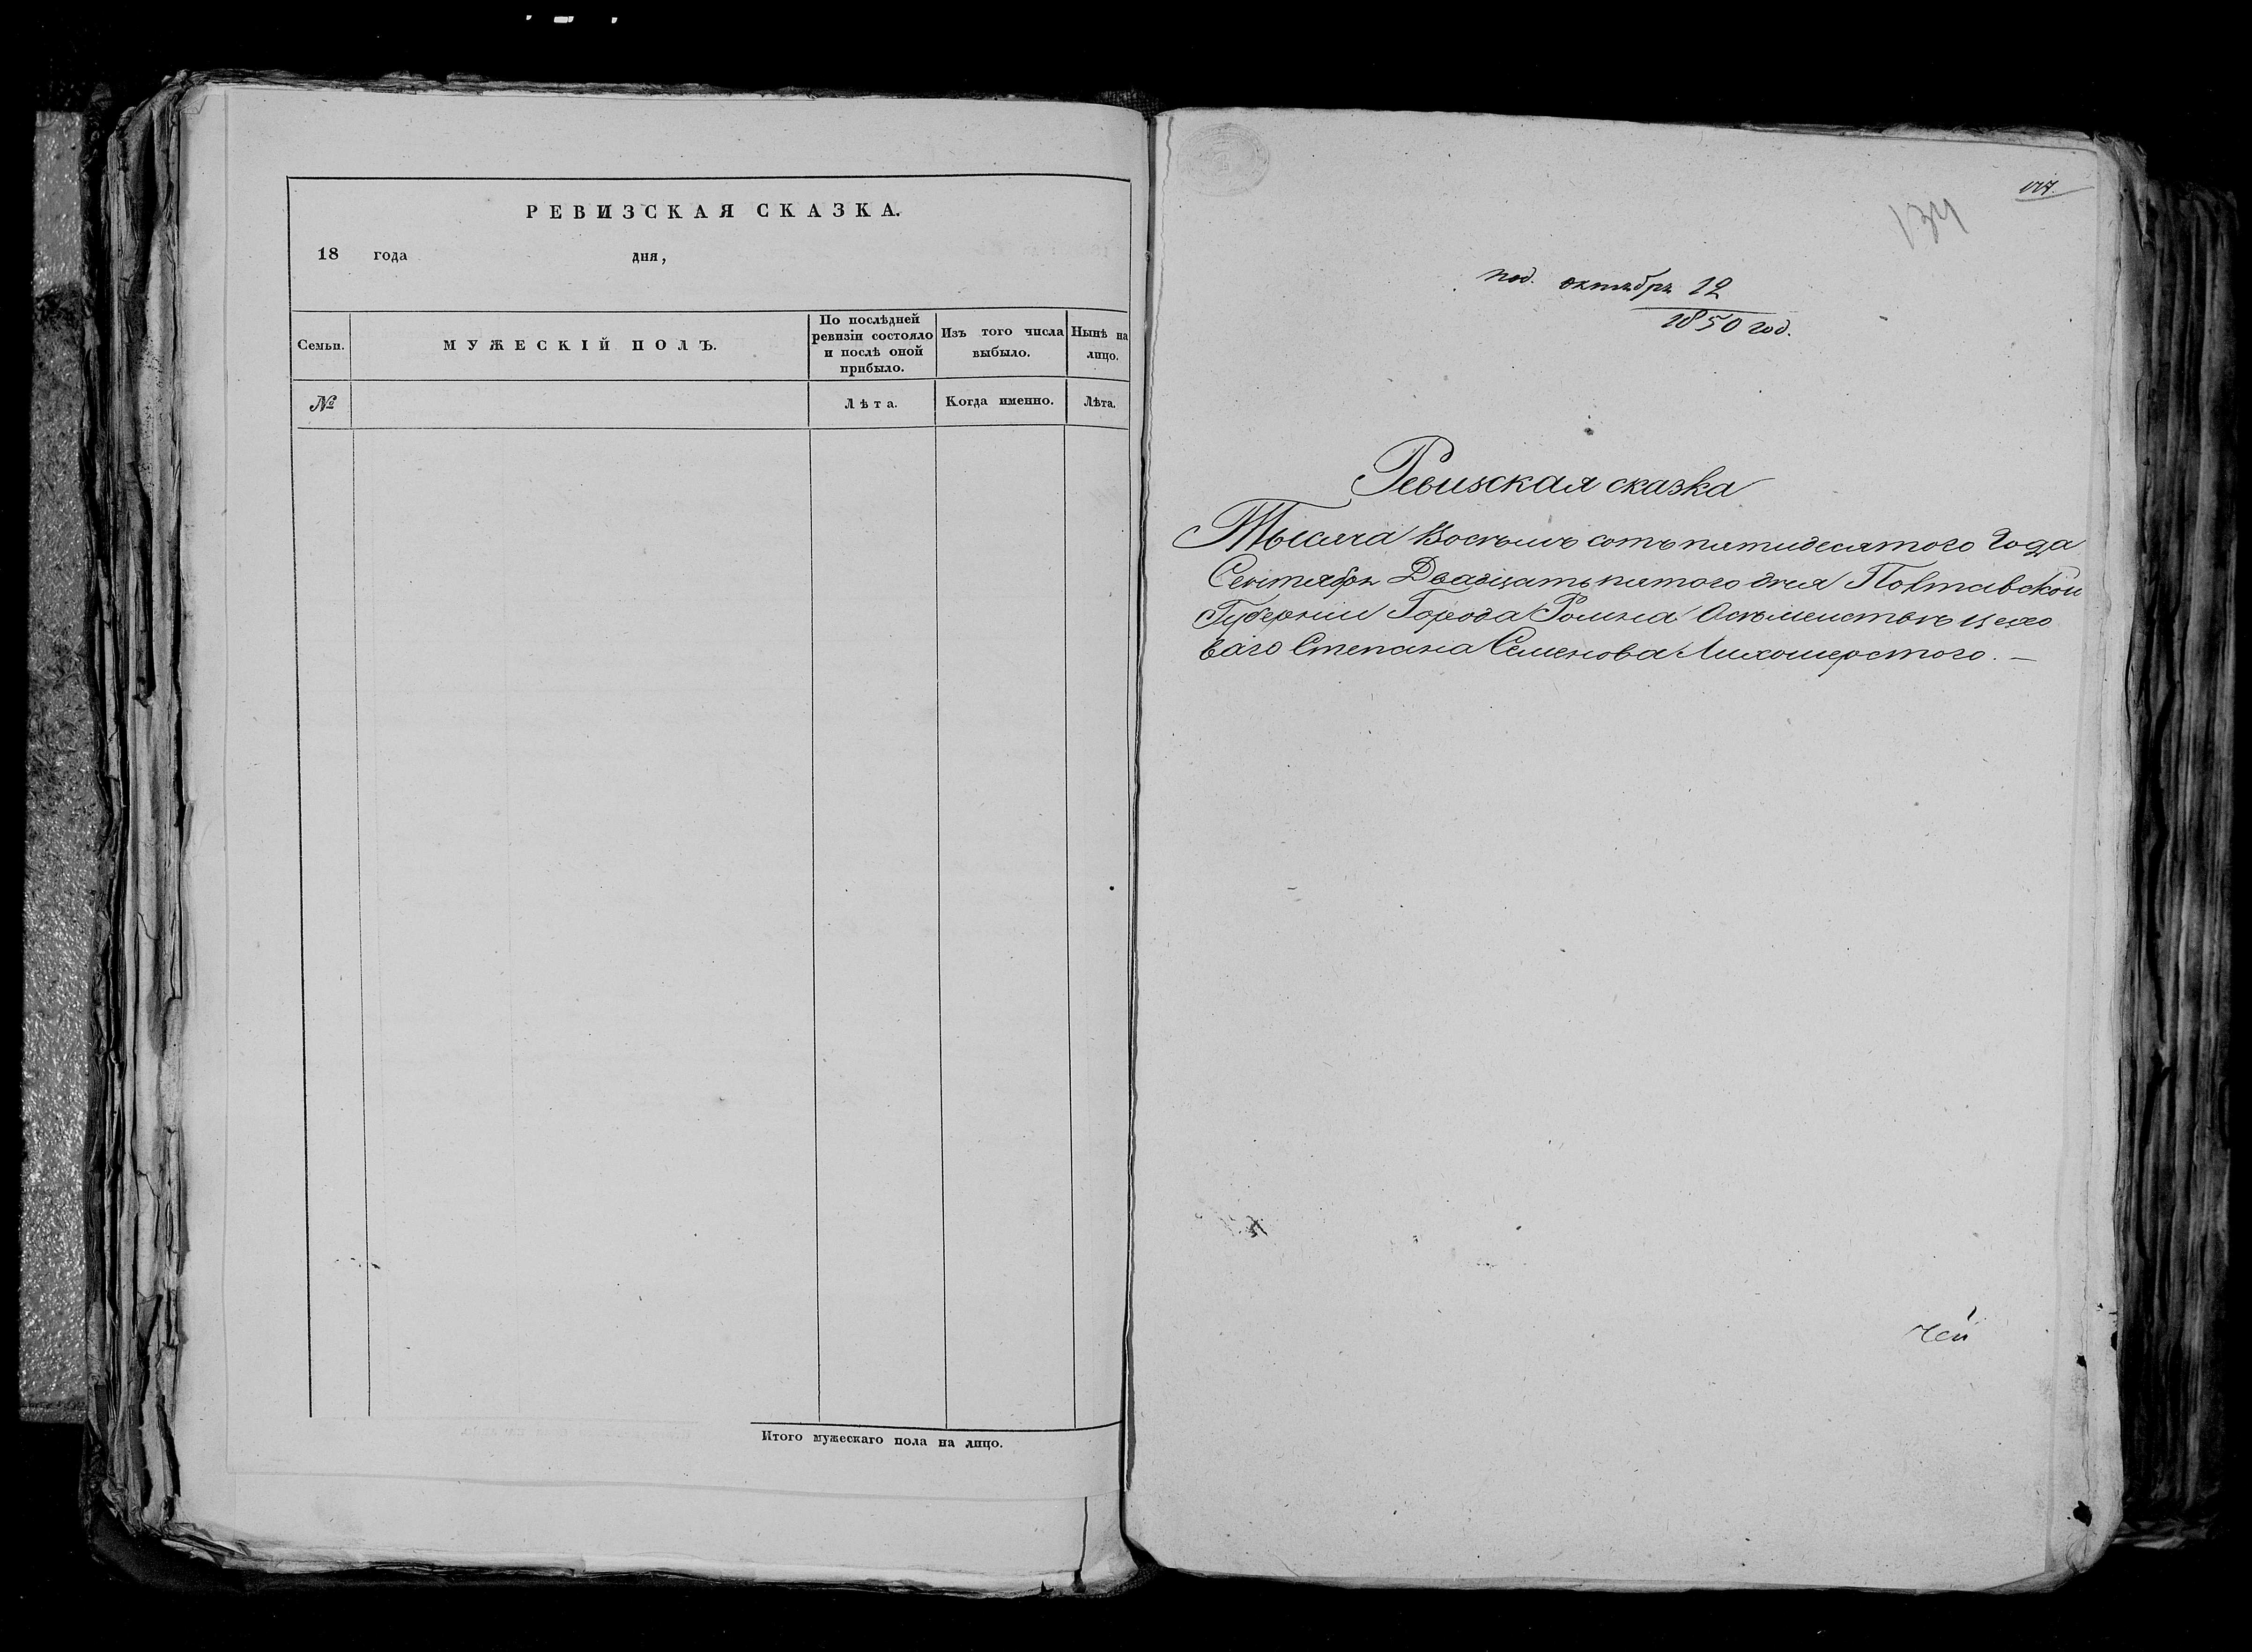 РЕВИЗСКАЯ СКАЗКА.
18 года дня,
Семьи.
МУЖЕСКІЙ ПОЛЪ.
По послѣдней
ревизіи состояло
и послѣ оной
прибыло.
Изъ того числа
выбыло.
Нынѣ на
лицо.
№
Лѣта.
Когда именно.
Лѣта.
Итого мужескаго пола на лицо.
134
под. октября 12
1850 год.
Ревизская сказка
Тысяча Восемь сотъ пятидесятого Года
Сентября Двадцать пятого дня Полтавской
Губерніи Города Ромна О цехо
ваго Степана Семенова Лихошерстого. —